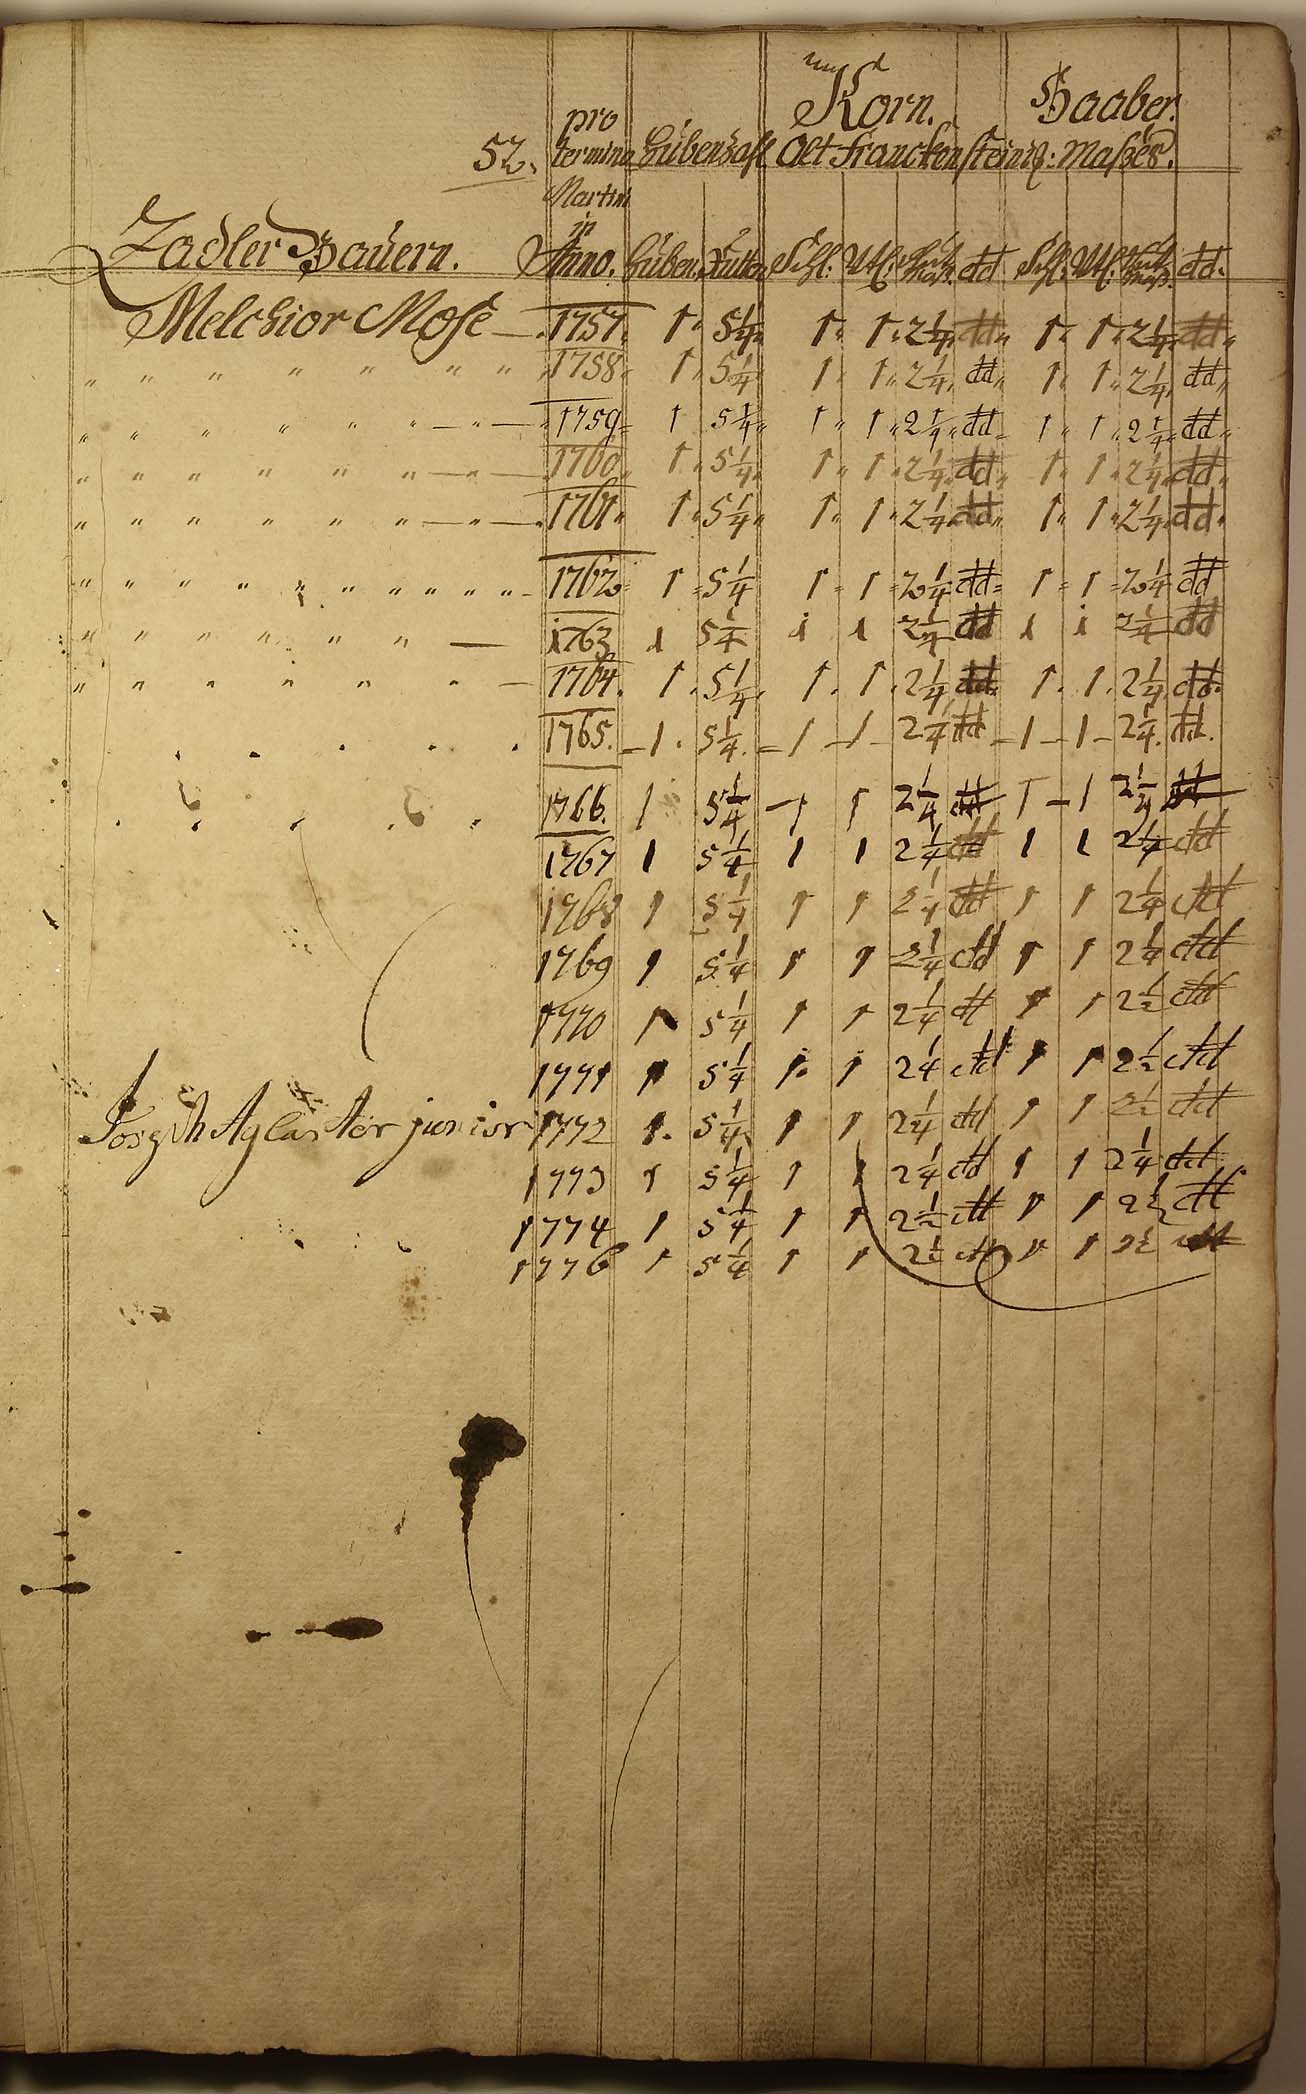 und
Korn. Haaber.
pro
52. termino Hubenzahl Alt Franckensteinis: Maßes.
Martini
in
Zadler Bauern. Anno. Huben. Rutten Schl: Vtl: Maß. dd Schl: Vtl: Maß. dd.
Melchior Mose — 1757 1 5 1/4 1 1 2 1/4 dd 1 1 2 1/4 dd
" " " " " " " 1758 1 5 1/4 1 1 2 1/4 dd 1 1 2 1/4 dd
" " " " " " — " — 1759 1 5 1/4 1 1 2 1/4 dd 1 1 2 1/4 dd
" " " " " " — " — 1760 1 5 1/4 1 1 2 1/4 dd 1 1 2 1/4 dd
" " " " " " — " — 1761 1 5 1/4 1 1 2 1/4 dd 1 1 2 1/4 dd
" " " " " " " " " " 1762 1 5 1/4 1 1 2 1/4 dd 1 1 2 1/4 dd
" " " " " " — 1763 1 5 1/4 1 1 2 1/4 dd 1 1 2 1/4 dd
" " " " " " — 1764. 1 5 1/4 1 1 2 1/4 dd 1 1 2 1/4 dd
1765. 1 5 1/4 1 1 2 1/4 dd 1 1 2 1/4 dd
1766. 1 5 1/4 1 1 2 1/4 dd 1 1 2 1/4 dd
1767 1 5 1/4 1 1 2 1/4 dd 1 1 2 1/4 dd
1768 1 5 1/4 1 1 2 1/4 dd 1 1 2 1/4 dd
1769 1 5 1/4 1 1 2 1/4 dd 1 1 2 1/4 dd
1770 1 5 1/4 1 1 2 1/4 dd 1 1 2 1/2 dd
1771 1 5 1/4 1 1 2 1/4 dd 1 1 2 1/2 dd
Joseph Aglaster junior 1772 1 5 1/4 1 1 2 1/4 dd 1 1 2 1/2 dd
1773 1 5 1/4 1 1 2 1/4 dd 1 1 2 1/4 dd
1774 1 5 1/4 1 1 2 1/2 dd 1 1 2 1/2 dd
1776 1 5 1/4 1 1 2 1/2 dd 1 1 2 1/2 dd